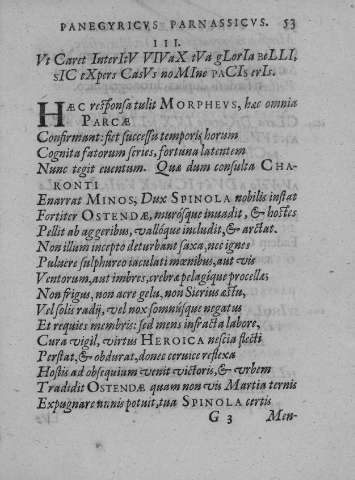 PANEGYRICVS PARNASSICVS. 53
III.
Vt Caret InterItV VIVaX tVa gLorIa BeLLI,
SIC eXpers CasVs noMIne PACIs erIs.
HÆC responsa tulit MORPHEVS, hæc omnia
PARCÆ
Confirmant: fiet successu temporis, horum
Cognita fatorum series, fortuna latentem
Nunc tegit euentum. Quæ dum consulta CHA-
RONTI
Enarrat MINOS, Dux SPINOLA nobilis instat
Fortiter OSTENDÆ, murosque inuadit, & hostes
Pellit ab aggeribus, valloque includit, & arctat.
Non illum incepto deturbant saxa, nec ignes
Puluere sulphureo iaculati mœnibus, aut vis
Ventorum, aut imbres, crebræ pelagique procellæ,
Non frigus, non acre gelu, non Sirius æstu,
Vel solis radij, vel nox somnusque negatus
Et requies membris: sed mens infracta labore,
Cura vigil, virtus HEROICA nescia flecti
Perstat, & obdurat, donec ceruice reflexa
Hostis ad obsequium venit victoris, & vrbem
Tradidit OSTENDÆ quam non vis Martia ternis
Expugnare annis potuit, tua SPINOLA certis
G 3 Men-